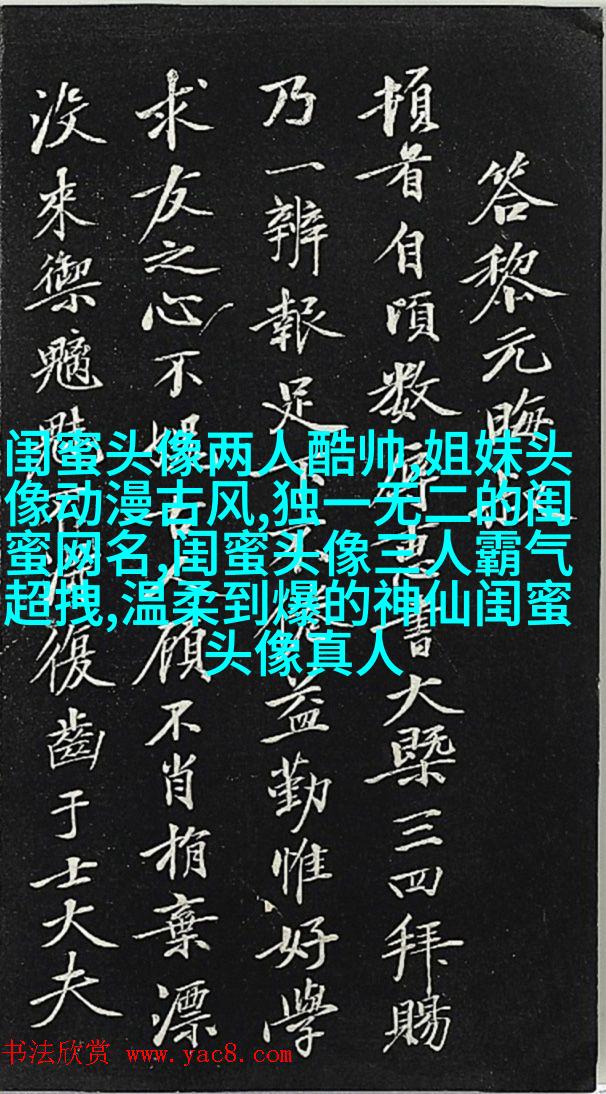 答黎元晦
頓首自頃数
書大槩三四拜賜
乃一辨報足
益勤惟好學
求友之心不
顧不肖捐棄漂
没来禦魑魅
復齒于士大夫
闺蜜头像两人酷帅,姐妹头
像动漫古风,独一无二的闺
蜜网名,闺蜜头像三人霸气
超拽,温柔到爆的神仙闺蜜
头像真人
书法欣赏 www.yac8.com